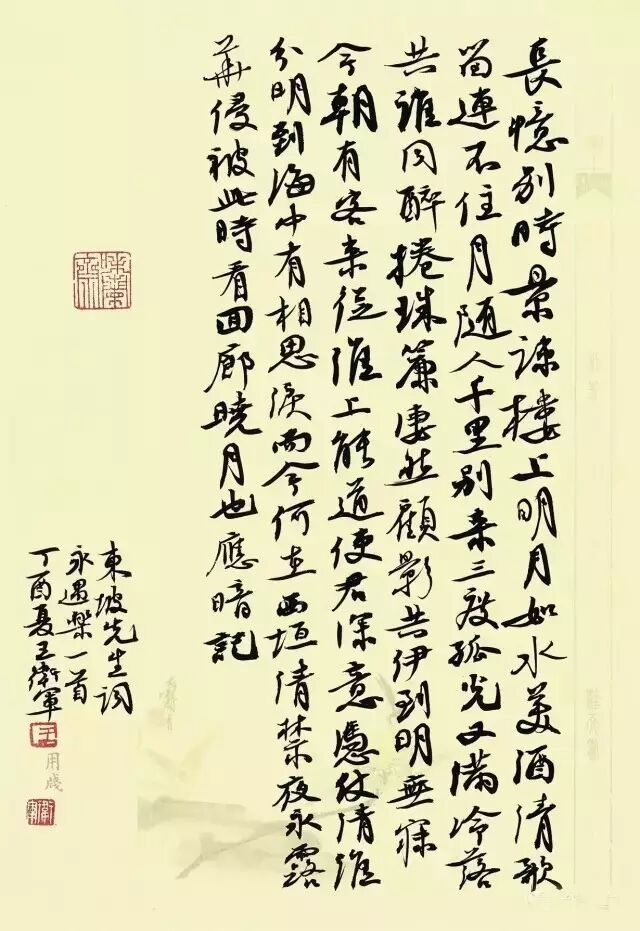 長憶別時景疎樓上明月如水美酒清歌
留連不住月隨人千里別來三度孤光又滿冷落
共誰同醉捲珠簾淒然顧影共伊到明無寐
今朝有客來從淮上能道使君深意憑仗清淮
分明到海中有相思淚而今何在西垣清禁夜永露
華侵被此時看回廊曉月也應暗記
東坡先生詞
永遇樂一首
丁酉夏王衛軍
用牋